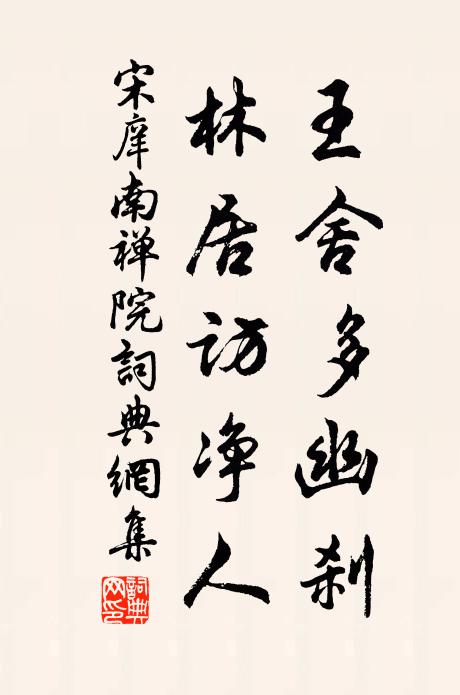 王舍多幽刹
林居访净人
宋庠南禅院詞典網集
詞典網印